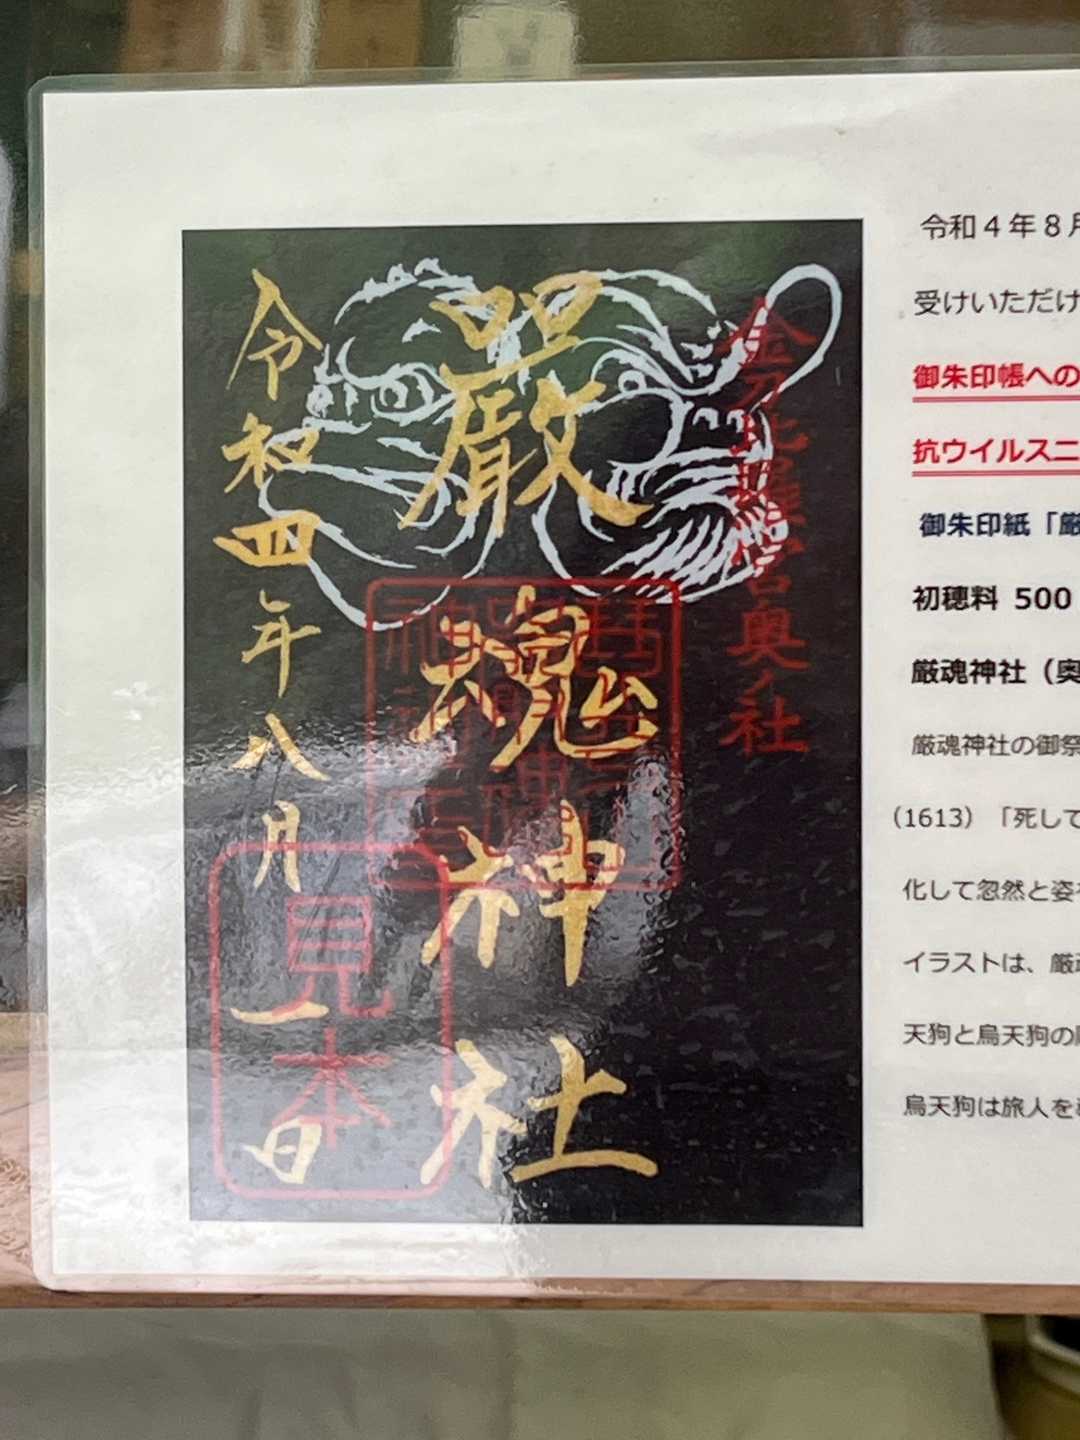 金刀比羅宮奥ノ社
嚴魂神社
令和四年八月一日
見本
令和4年8月
受けいただけ
御朱印帳への
抗ウイルスニ
御朱印紙「厳
初穂料 500
厳魂神社（奥
厳魂神社の御祭
（1613）「死して
化して忽然と姿
イラストは、厳
天狗と烏天狗の
烏天狗は旅人を